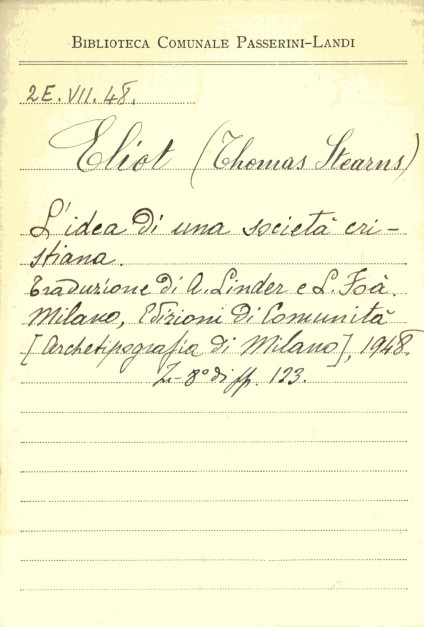 BIBLIOTECA COMUNALE PASSERINI-LANDI
2E. VII. 48.
Eliot (Thomas Stearns)
L'idea di una società cri-
stiana.
Traduzione di A. Linder e L. Foà.
Milano, Edizioni di Comunità
[Archetipografia di Milano], 1948.
8° di pp. 123.